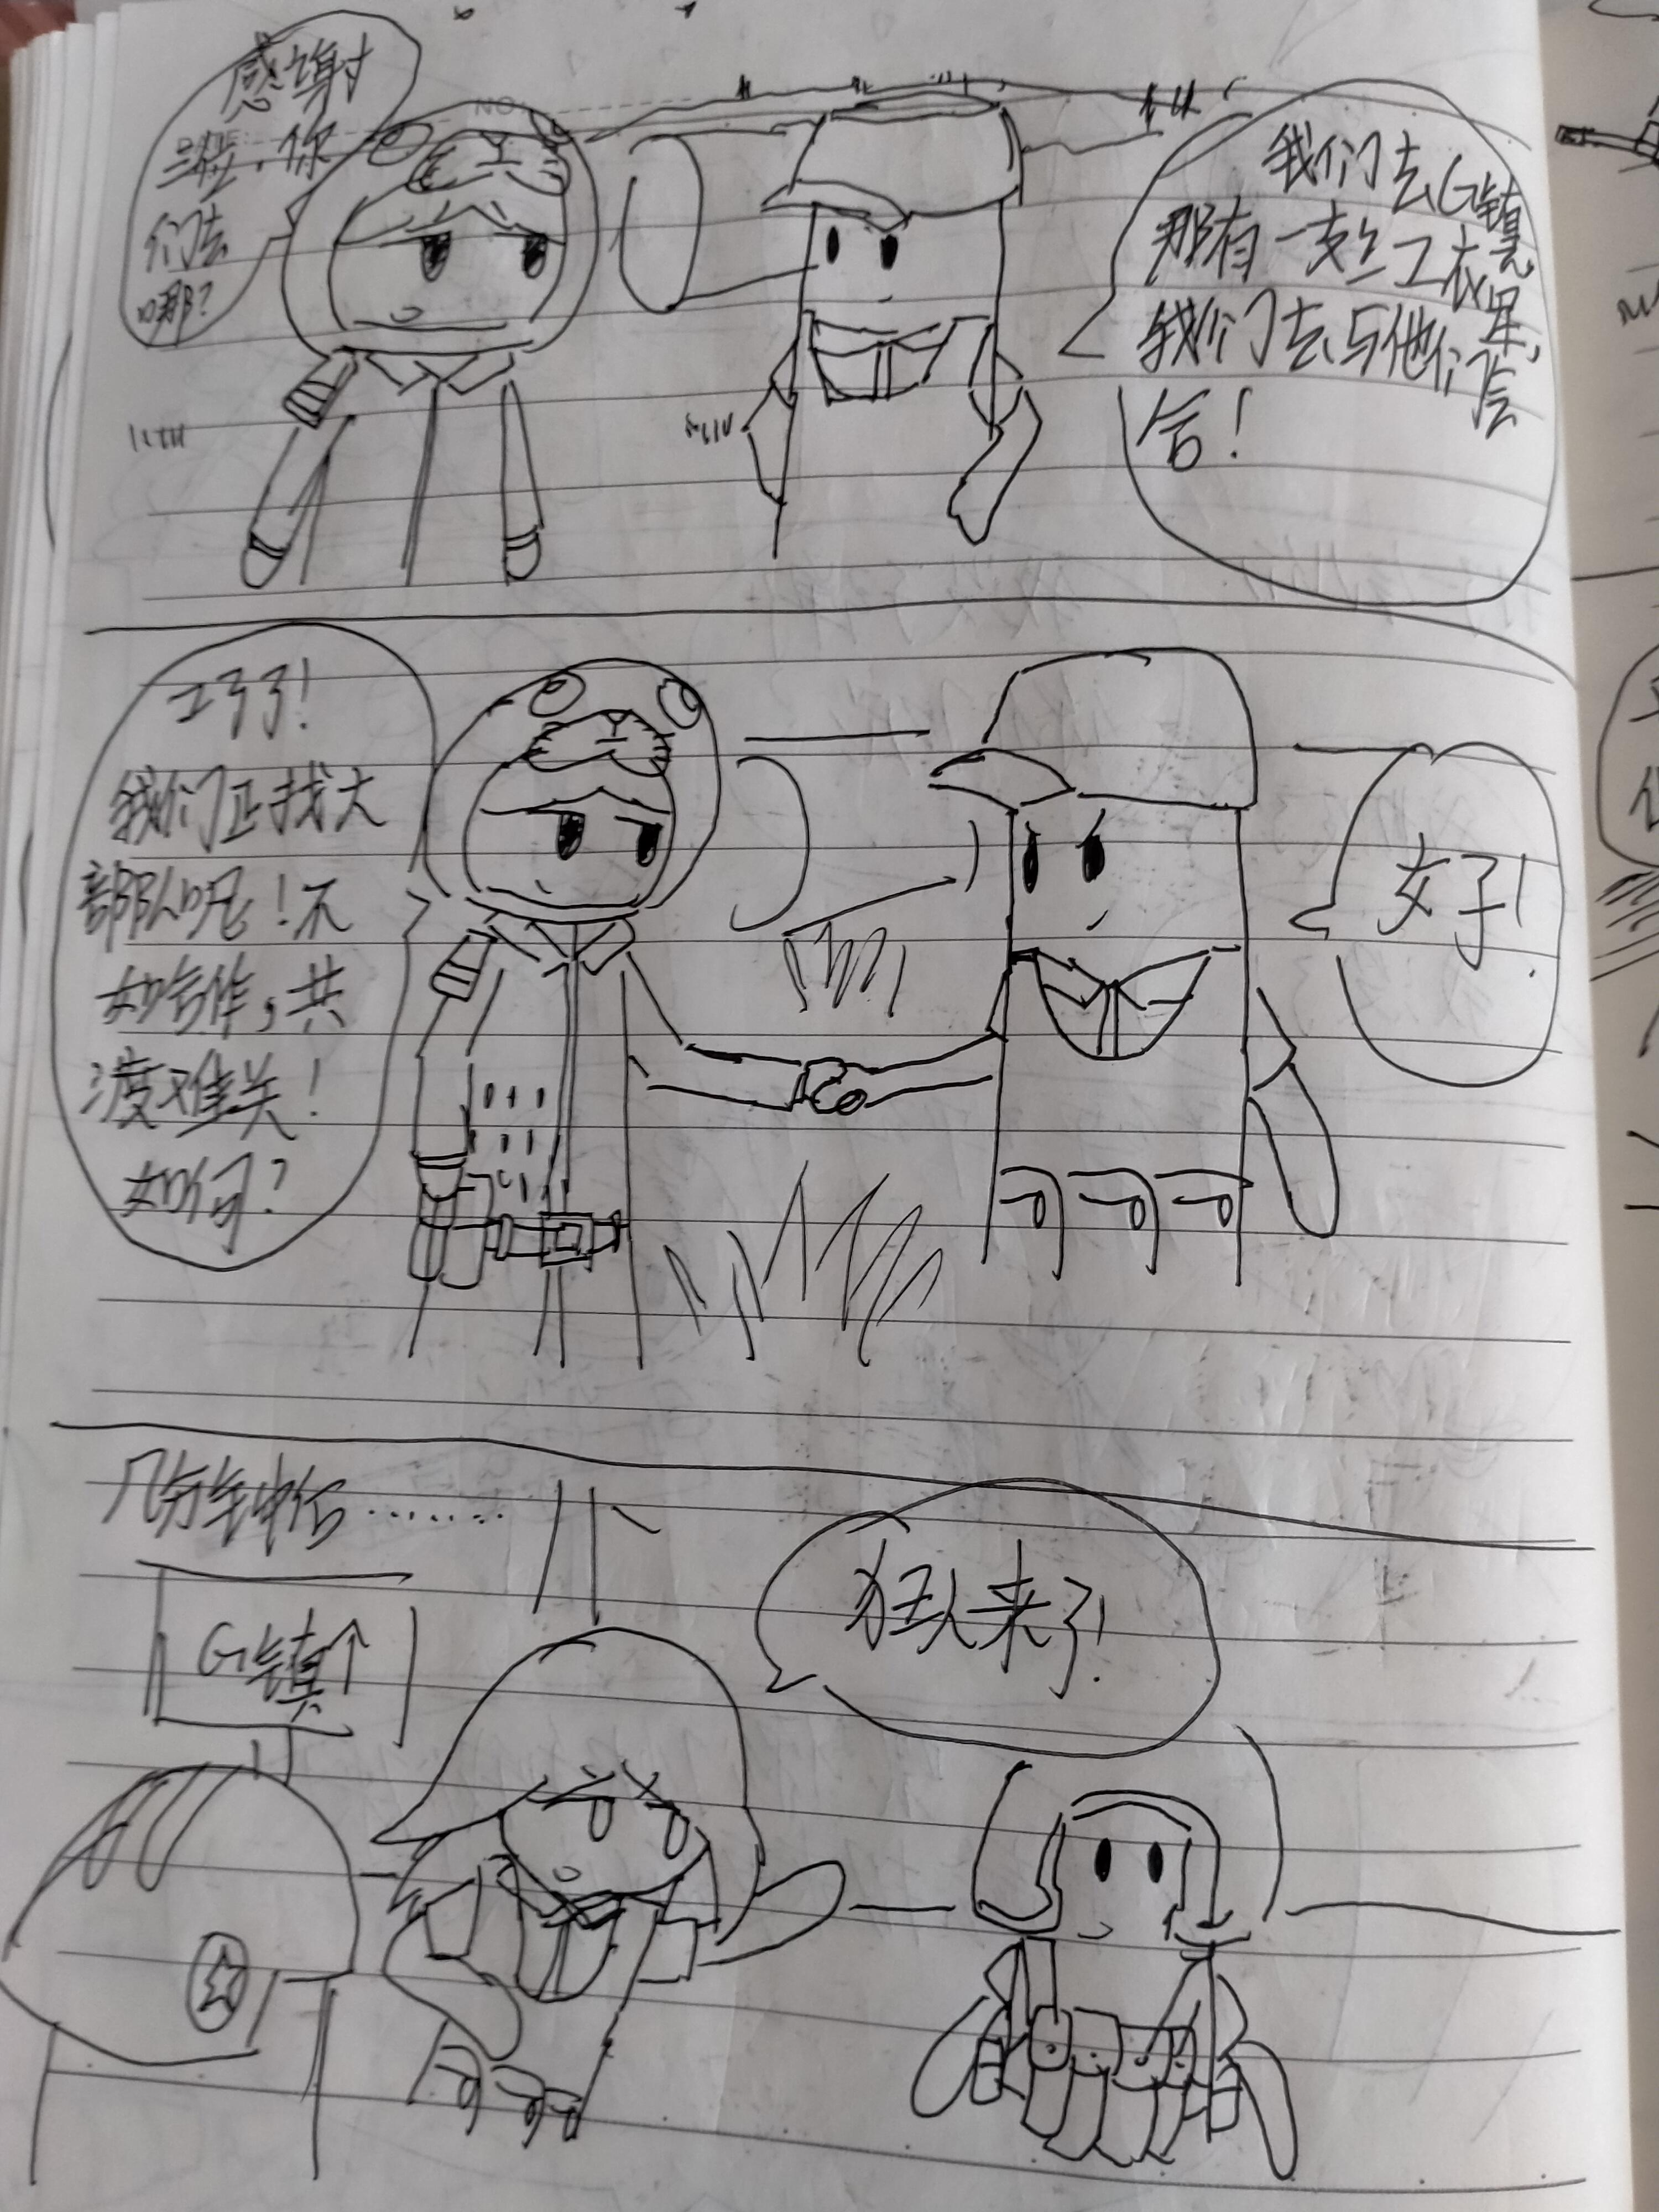 感谢
三位,你
们去
哪?
我们去G镇,
那有一支红衣
我们去与他们会
合!
巧了!
我们正找大
部队呢!不
如合作,共
渡难关!
如何?
好!
几分钟后.......
G镇↑
狂人来了!